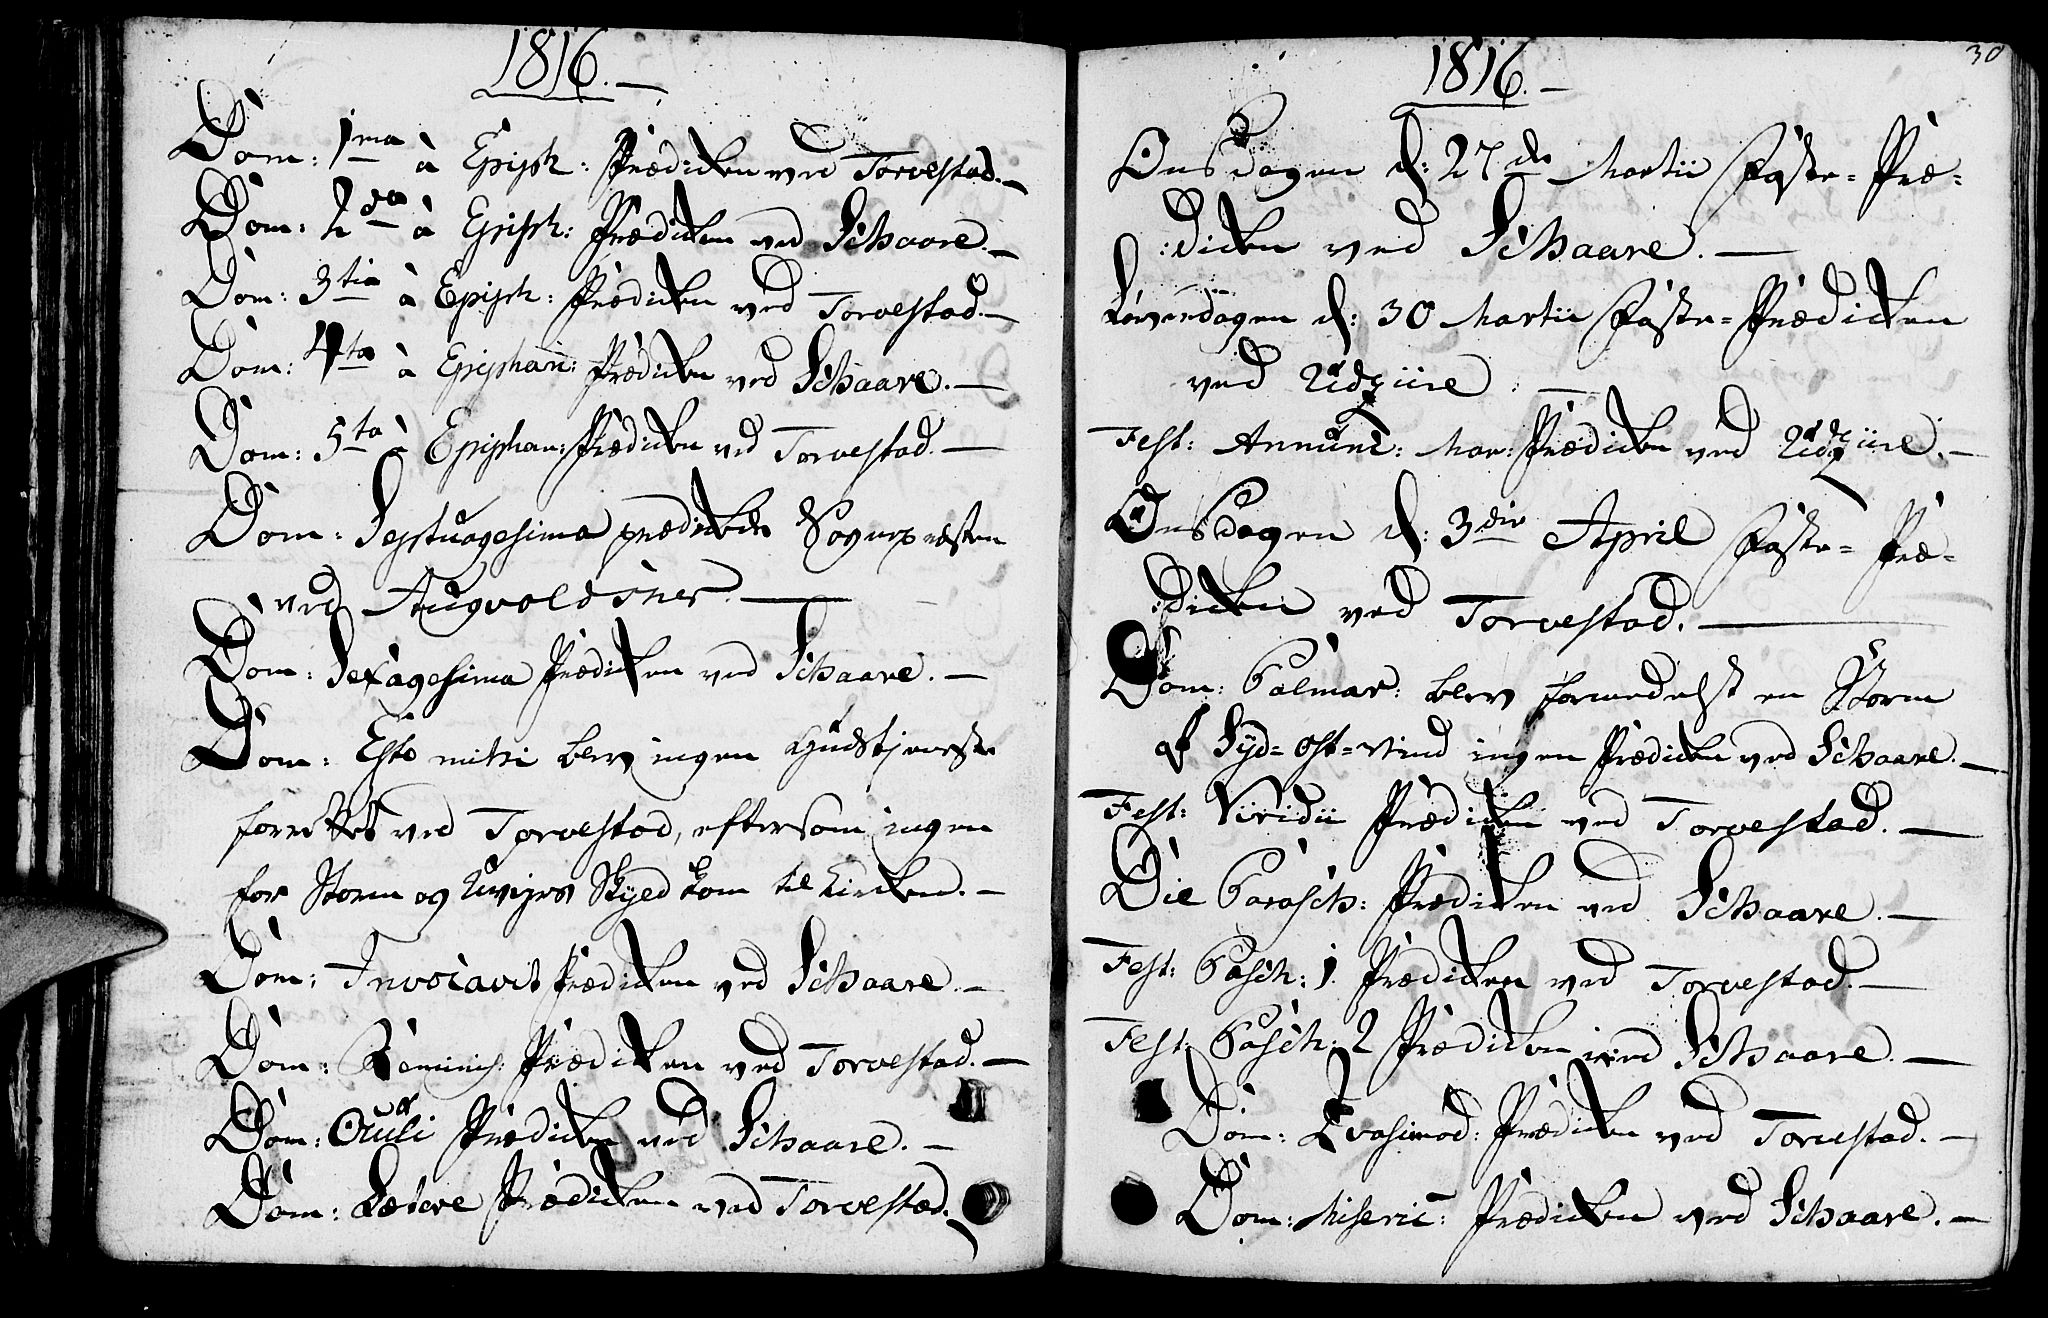 1816.—
Dom: 1ma à Epiph: Prædicken ved Torvestad.—
Dom: 2da à Epiph: Prædicken ved Schaare.—
Dom: 3tia à Epiph: Prædicken ved Torvestad.—
Dom: 4ta à Epiphan: Prædicken ved Schaare.—
Dom: 5ta à Epiphan: Prædicken ved Torvestad.—
Dom: Septuagesima prædikede Sognepræsten
ved Augvoldsnes.—
Dom: Sexagesima Prædicken ved Schaare.—
Dom: Esto mihi blev ingen Gudstjeneste
forrettet ved Torvestad, eftersom ingen
for Storm og Uvejrs Skyld kom til Kircken.—
Dom: Invocavit Prædicken ved Schaare.—
Dom: Reminis: Prædicken ved Torvestad.—
Dom: Oculi Prædicken ved Schaare.—
Dom: Lætare Prædicken ved Torvestad.
30
1816.—
Onsdagen d: 27de Martii Faste=Præ=
:dicken ved Schaare.—
Løverdagen d: 30 Martii Faste=Prædicken
ved Udziire:—
Fest: Annunc: Mar: Prædicken ved Udziire.—
Onsdagen d: 3die April Faste=Præ=
:dicken ved Torvestad.—
Dom: Palmar: blev formedelst en Storm
af Syd=Ost=vind ingen Prædicken ved Schaare.—
Fest: Viridii Prædicken ved Torvestad.—
Die Parasch: Prædicken ved Schaare.—
Fest: Pasch: 1. Prædicken ved Torvestad.—
Fest: Pasch: 2 Prædicken ved Schaare.—
Dom: Qvasimod: Prædicken ved Torvestad.—
Dom: Miseric: Prædicken ved Schaare.—